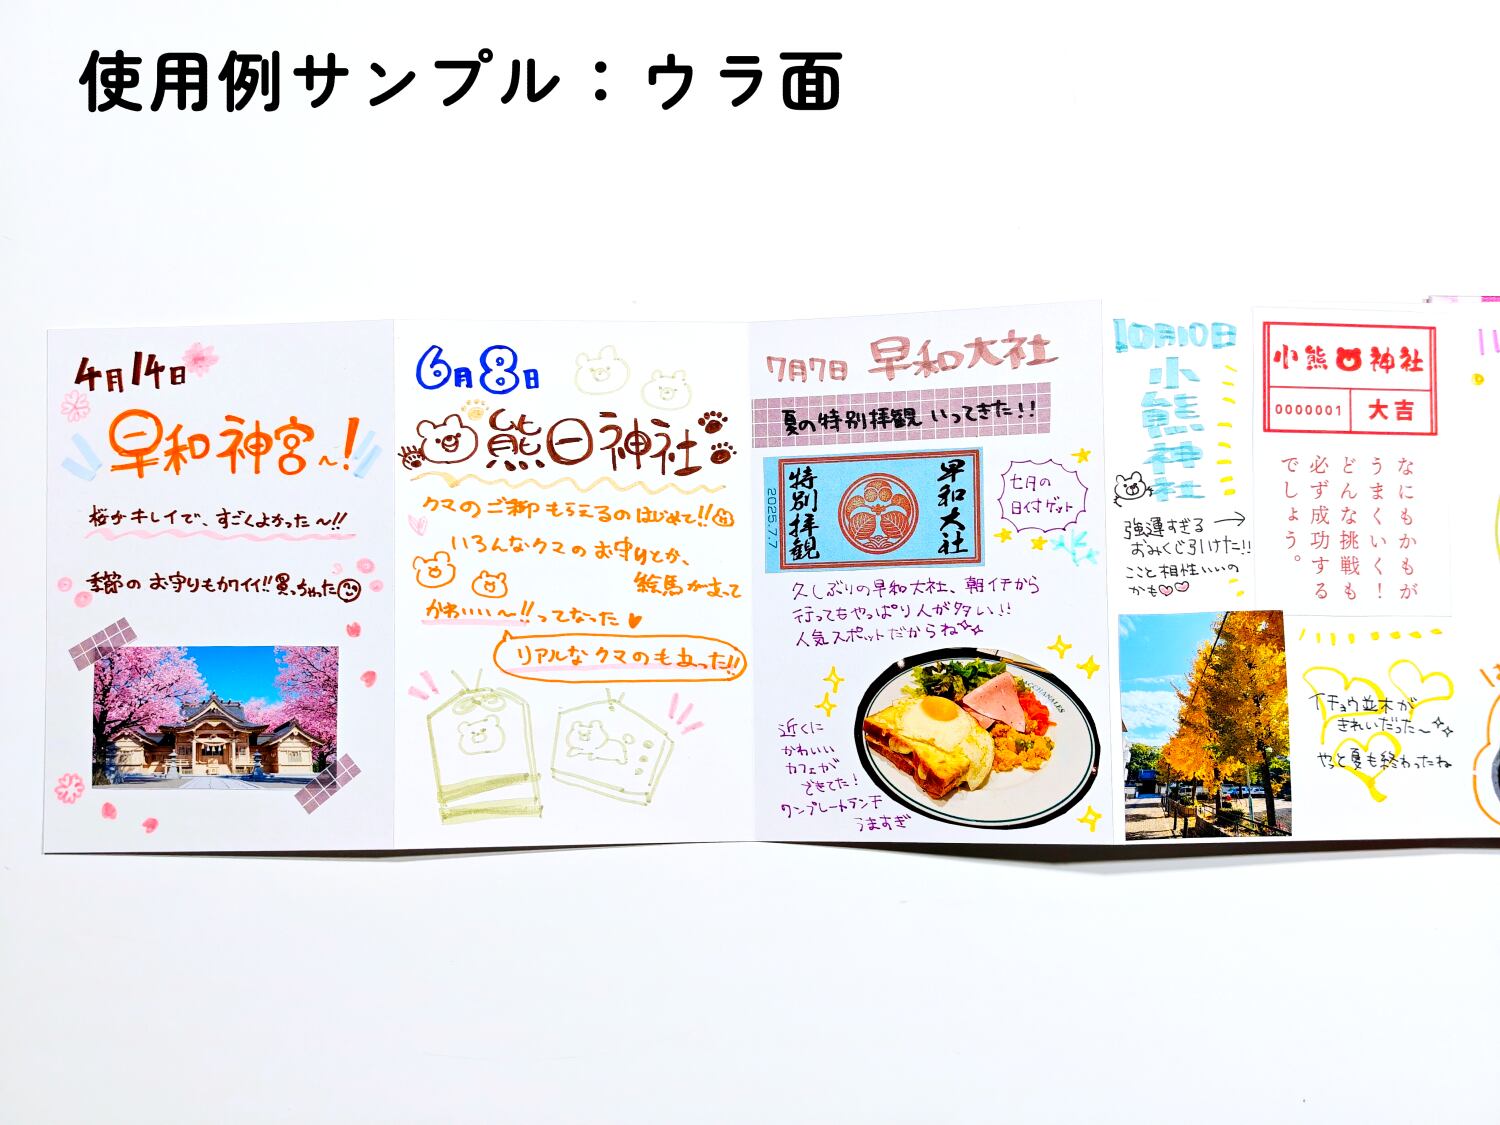 使用例サンプル：ウラ面
4月14日
早和神宮～!
桜がキレイで、すごくよかった～!!
季節の お守りもカワイイ!! 買っちゃった
6月8日
熊日神社
クマのご御 もらえるのはじめて!!
いろんなクマのお守りとか、
絵馬があって
かわいい～!! ってなった
リアルなクマのもあった!!
7月7日 早和大社
夏の特別拝観 いってきた!!
早和大社
特別拝観
2025.7.7
七月の
日付ゲット
久しぶりの早和大社、朝イチから
行ってもやっぱり人が多い!!
人気スポットだからね
近くに
かわいい
カフェが
できてた!
ワンプレートランチ
うますぎ
BACCHANALES
10月10日
小熊神社
強運すぎる →
おみくじ引けた!!
ここと相性いいの
かも
小熊 神社
0000001 大吉
なにもかもが
うまくいく!
どんな挑戦も
必ず成功する
でしょう。
イチョウ並木が
きれいだった～
やっと夏も終わったね